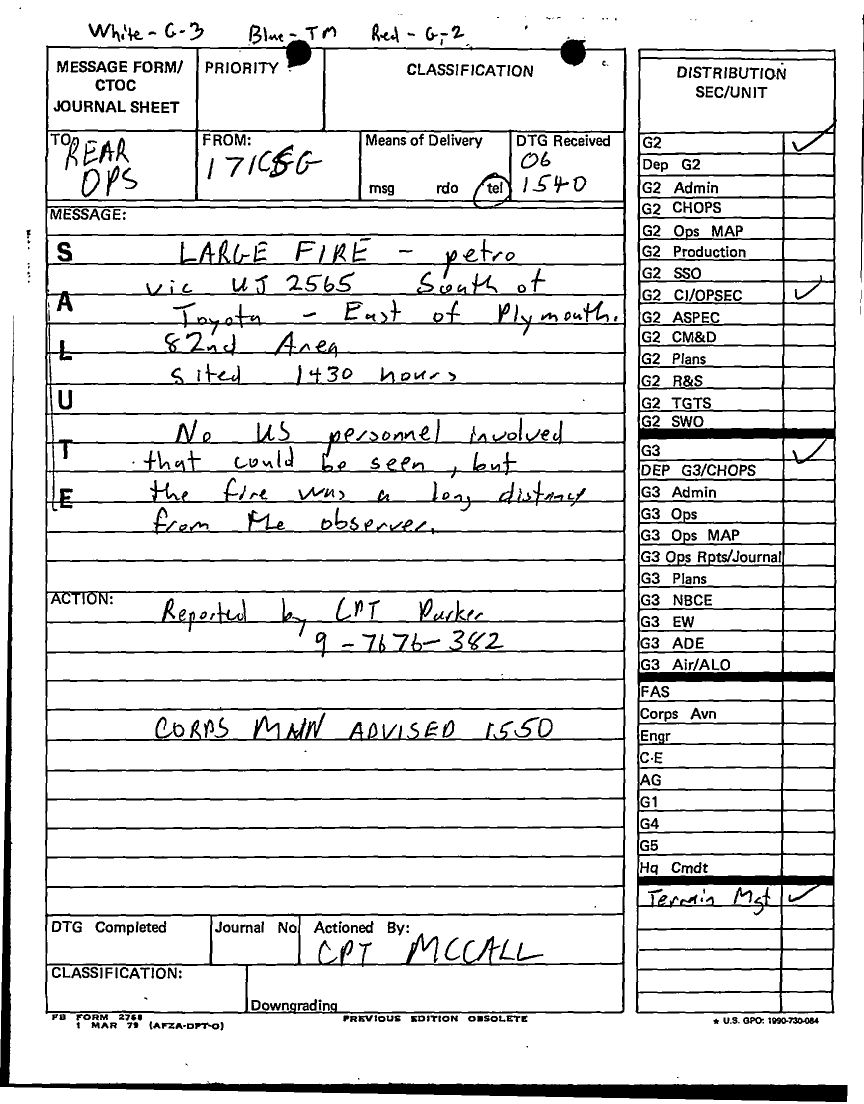 White - G-3 Blue - TM Red - G-2
MESSAGE FORM/
CTOC
JOURNAL SHEET
PRIORITY
CLASSIFICATION
TO:
REAR
OPS
FROM:
171CSG
Means of Delivery
msg rdo tel
DTG Received
06
1540
MESSAGE:
S
A
L
U
T
E
LARGE FIRE - petro
vic UJ 2565 South of
Toyota - East of Plymouth.
82nd Area
sited 1430 hours
No US personnel involved
that could be seen, but
the fire was a long distancy
from the observer.
ACTION:
Reported by CPT Parker
9-7676-382
CORPS MAIN ADVISED 1550
DTG Completed
Journal No.
Actioned By:
CPT MCCALL
CLASSIFICATION:
Downgrading
FB FORM 2768
1 MAR 79 (AFZA-DPT-O)
PREVIOUS EDITION OBSOLETE
DISTRIBUTION
SEC/UNIT
G2
Dep G2
G2 Admin
G2 CHOPS
G2 Ops MAP
G2 Production
G2 SSO
G2 CI/OPSEC
G2 ASPEC
G2 CM&D
G2 Plans
G2 R&S
G2 TGTS
G2 SWO
G3
DEP G3/CHOPS
G3 Admin
G3 Ops
G3 Ops MAP
G3 Ops Rpts/Journal
G3 Plans
G3 NBCE
G3 EW
G3 ADE
G3 Air/ALO
FAS
Corps Avn
Engr
C-E
AG
G1
G4
G5
Hq Cmdt
Terrain Mgt
★ U.S. GPO: 1990-730-084